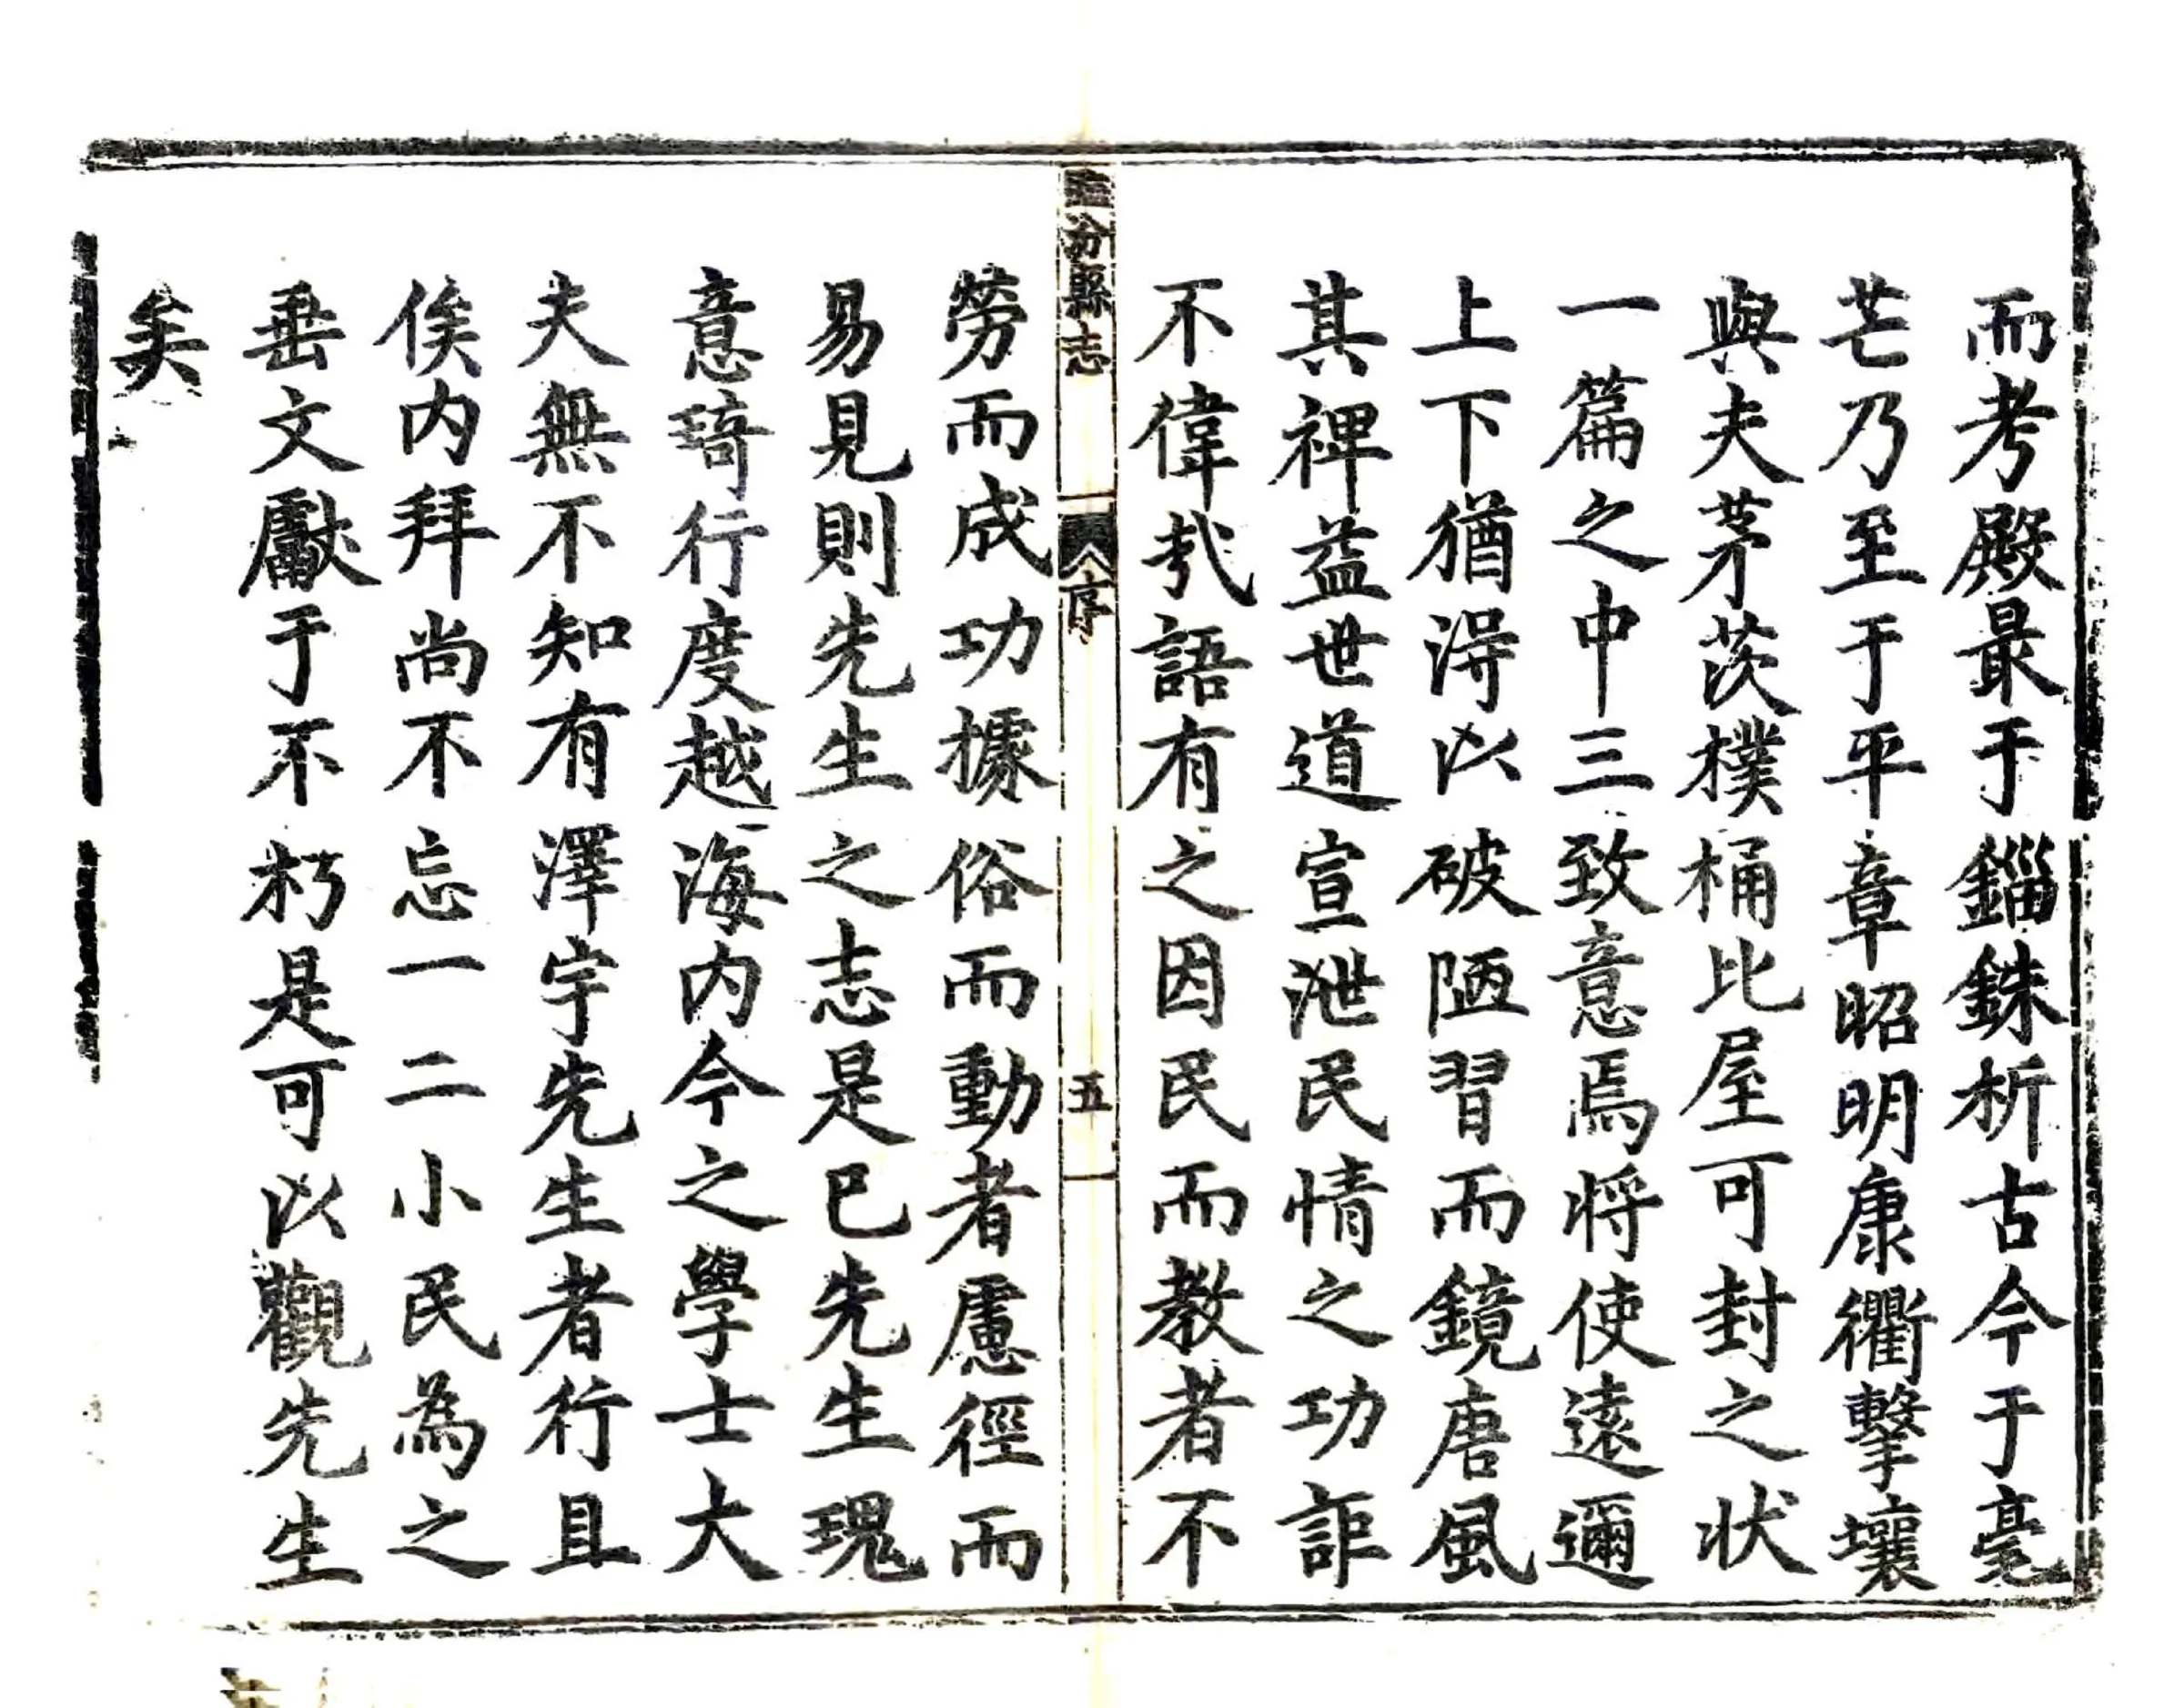 而考殿最于錙銖析古今于毫
芒乃至于平章昭明康衢擊壤
與夫茅茨樸桷比屋可封之狀
一篇之中三致意焉将使遠邇
上下猶淂以破陋習而鏡唐風
其裨益世道宣泄民情之功詎
不偉㢤語有之因民而教者不
縣志 序 五
勞而成功據俗而動者慮徑而
易見則先生之志是已先生瑰
意琦行度越海内今之學士大
夫無不知有澤宇先生者行且
俟内拜尚不忘一二小民為之
垂文獻于不朽是可以觀先生
矣